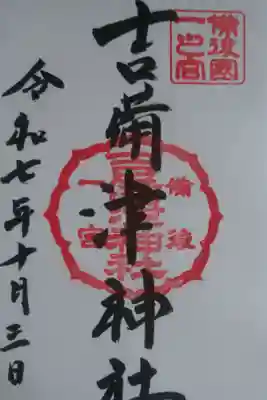 備後國
一之宮
吉備津神社
備後
一宮
吉備津神社
令和七年十月三日